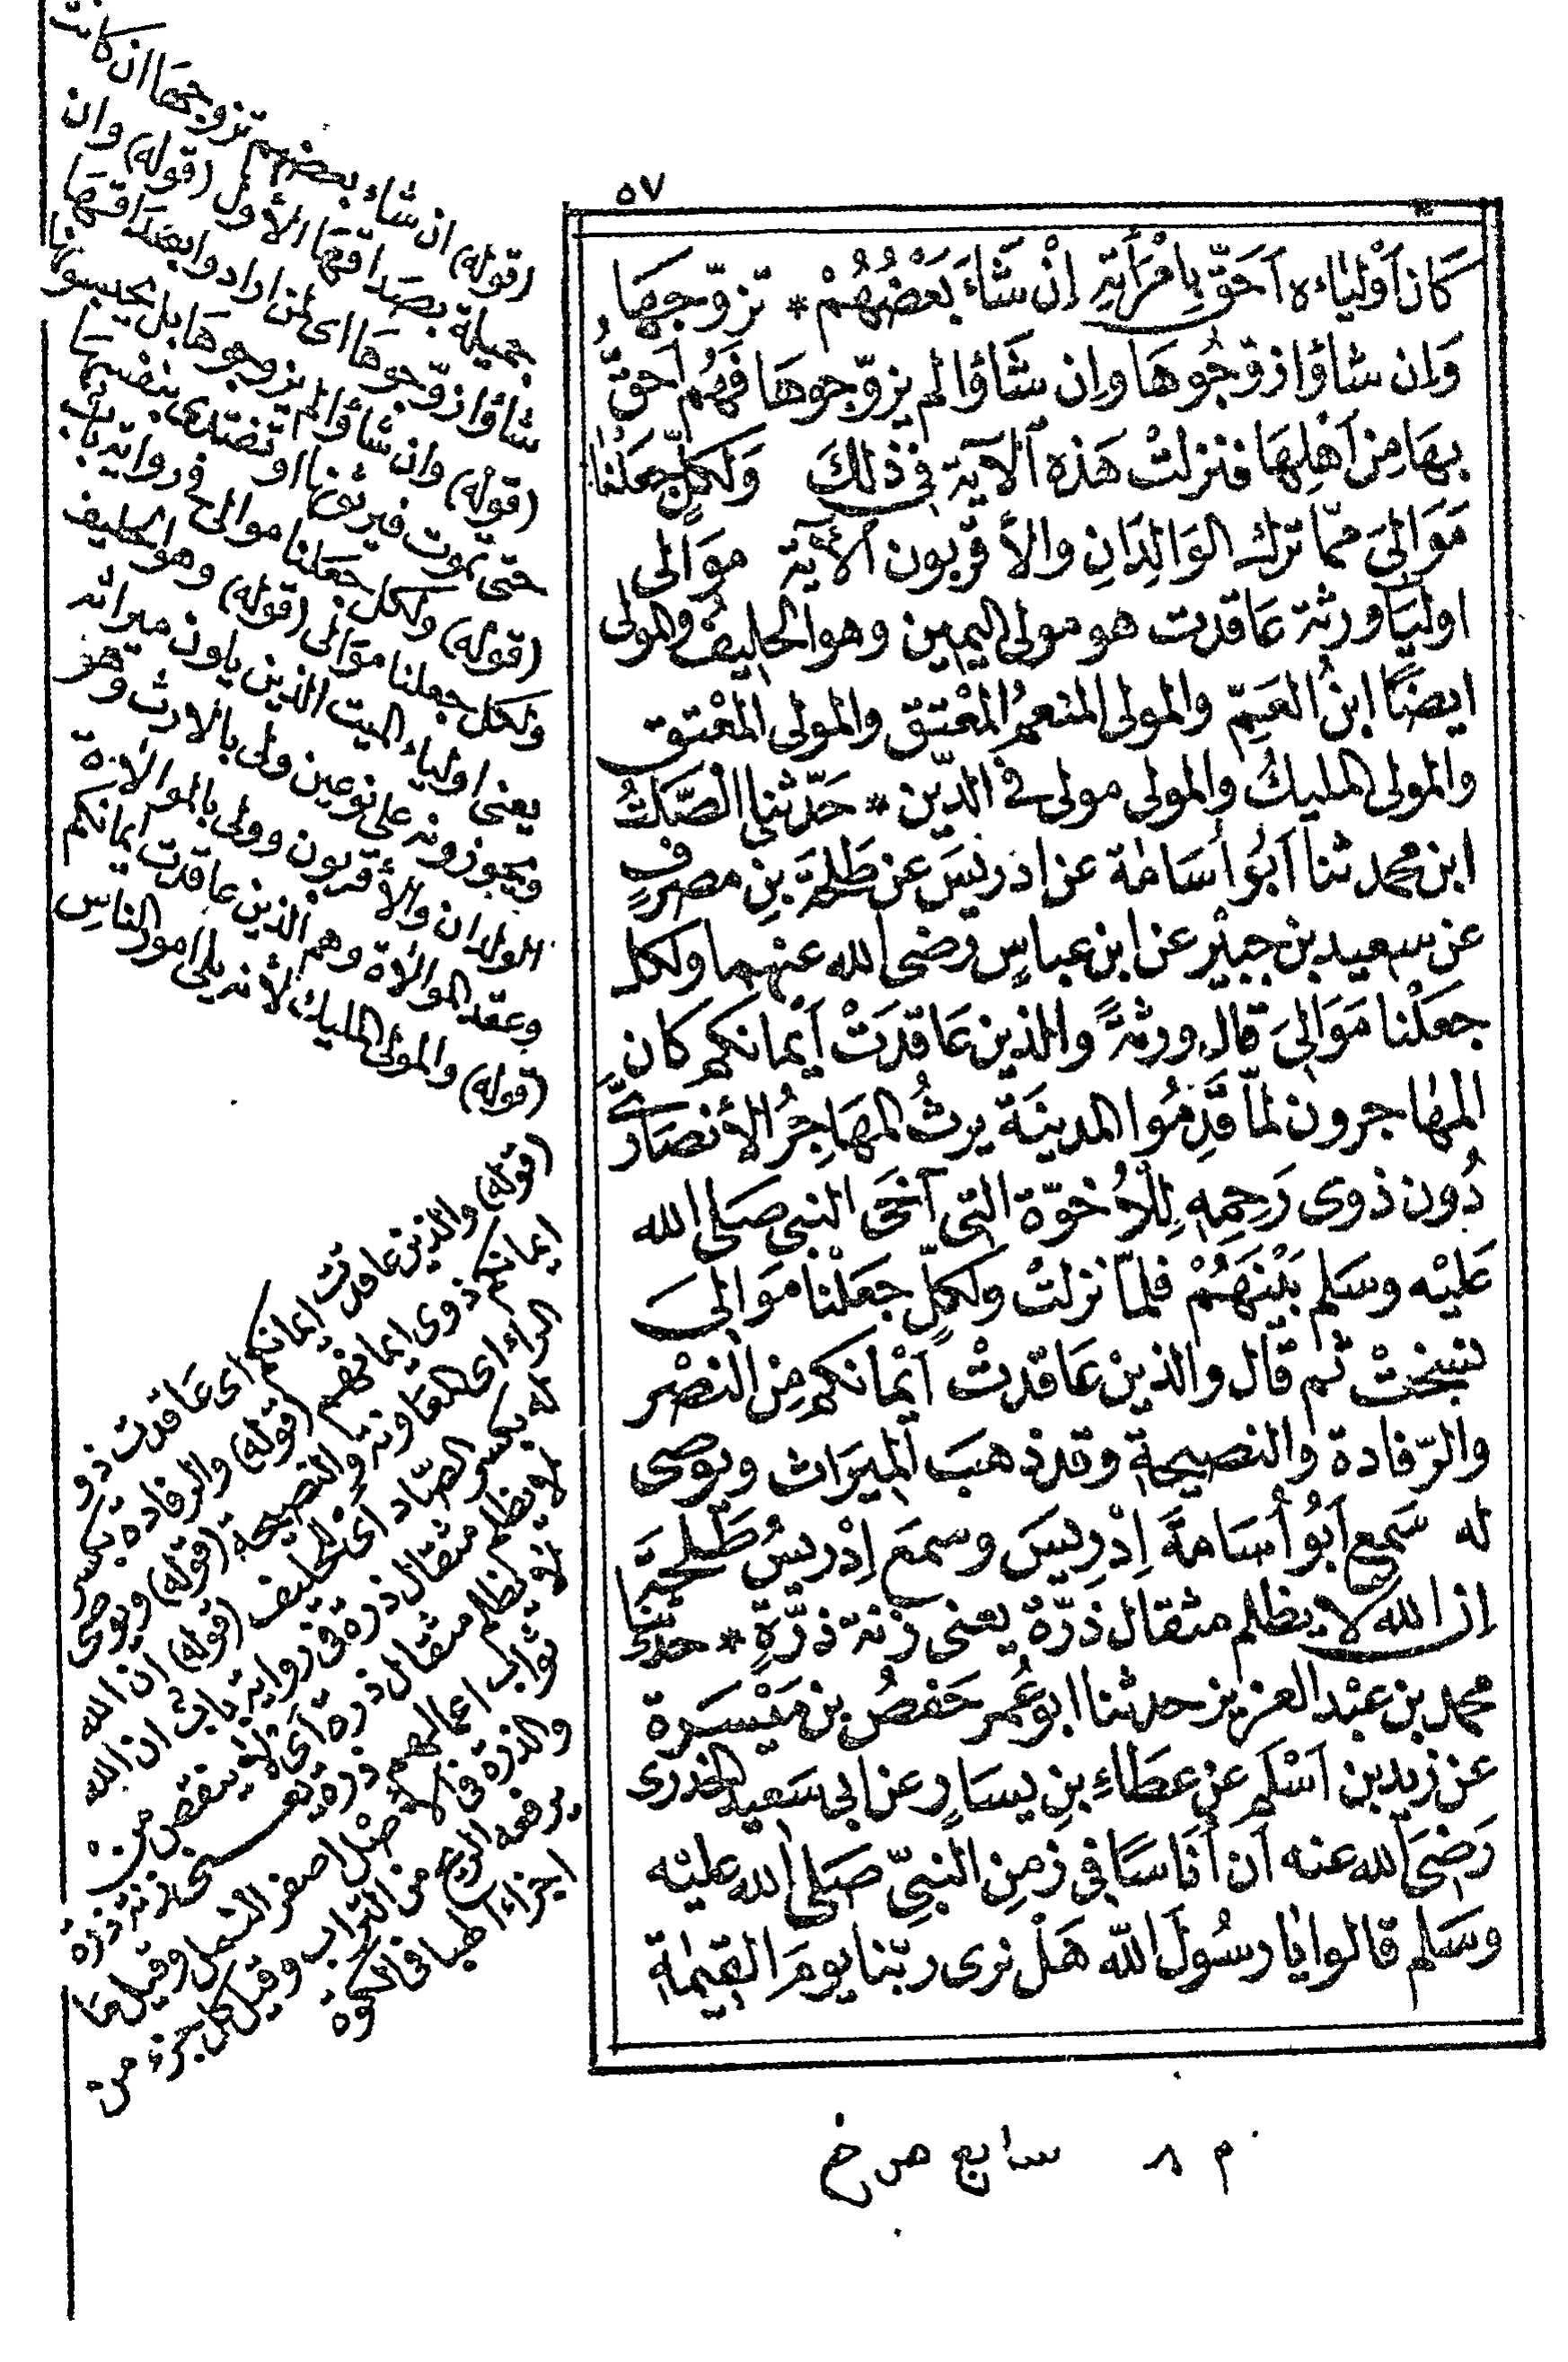 ٥٧
كَانَ اَوْلِيَاءه اَحَقَّ بِامْرَأَتِهِ اِنْ شَاءَ بَعْضُهُمْ * تزوّجهَا
وَاِن شاؤا زوّجُوهَا وان شَاؤا لم يزوّجوهَا فَهُم اَحقُّ
بِهَا مِن اَهْلِهَا فنزلتْ هَذه الآية في ذٰلكَ وَلكلٍّ جعَلنا
مَوَالِيَ ممّا ترك الوَالِدَانِ والأقربون الآية موَالى
اوليَا ورثة عَاقدت هو مولى اليمين وهو الحليفُ والمولى
ايضًا ابنُ العَمِّ والمولى المنعمُ المُعْتِق والمولى المُعْتَق
والمولى المليكُ والمولى مولى في الدّين * حَدّثني الصَّلْتُ
ابن محمد ثنا اَبُو أُسَامَة عن ادريسَ عن طَلحَةَ بنِ مصرفٍ
عن سعيد بن جبيْر عن ابن عباسٍ رضى الله عنهما ولكل
جعَلْنا مَوَالِيَ قال ورثةً والذين عَاقدَتْ اَيْمانكم كان
المهَاجرون لمّا قَدِمُوا المدينَة يرثُ المهَاجِرُ الأنصَاريَّ
دُون ذوى رَحِمِهِ لِلْاُخوّة التى آخَى النبى صَلى الله
عَليْه وسَلم بَيْنَهُمْ فلمّا نزلتْ ولكلٍّ جعَلْنا مَوَالِىَ
نسِخَتْ ثم قال والذين عَاقدتْ اَيْمانكم مِن النصْر
والرّفادة والنصيحة وقد ذهبَ الميَراث ويوصى
له سَمِع اَبُو أُسَامةَ اِدْرِيسَ وسمعَ اِدْريسُ طَلحَةَ
اِن الله لا يظلم مثقال ذَرّةٍ يعنى زنة ذَرَّةٍ * حدّثنا
محمد بن عبْد العزيز حدثنا ابو عُمر حَفصُ بن مَيْسَرة
عن زيد بن اَسْلَم عن عَطَاءِ بنِ يسَارٍ عن ابى سَعيد الخدرى
رَضىَ الله عنه اَن اُناسًا في زمنِ النبيِّ صَلى الله عليْه
وسَلم قالوا يَا رسُولَ الله هَلْ نرى ربّنا يومَ القيٰمةِ
(قوله) ان شاء بعضهم تزوجهَا ان كانت
جميلة بصَداقهَا الأول (قوله) وان
شاؤا زوّجوهَا اى لمن اراد وا بصَداقهَا
(قوله) وان شاؤا لم يزوجوهَا بل يحبسونها
حتى تموت فيرثونها او تفتدى بنفسهَا
(قوله) ولكل جعَلنا موالى الخ في رواية باب
ولكل جعلنا موَالى (قوله) وهو الحليف
يعنى اولياء الميت الذين يلون ميراثه
ويحوزونه على نوعين ولى بالارث وهو
الولدان والأقربون وولى بالموالاة
وعقد الموالاة وهم الذين عاقدت ايمانكم
(قوله) والمولى المليك لأنه يلى امور الناسِ
(قوله) والذين عاقدت ايمانكم اى عَاقدت ذوو
ايمانكم ذوى ايمانهم (قوله) والرفادة بكسر
الراء اى المعَاونة والنصيحة (قوله) ويوصى
له بكسر الصّاد اى للحليف (قوله) ان الله
لا يظلم مثقال ذرة في رواية باب ان الله
لا يظلم مثقال ذرة اَى لا ينقص من
ثواب اعمالهم ذرة يعنى زنة ذرة
والذرة في الاصْل اصغر النمل وقيل مَا
يرفعه الريح من التراب وقيل كل جزء من
اجزاء الهبا في الكوّة
م ٨ سابع ص خ